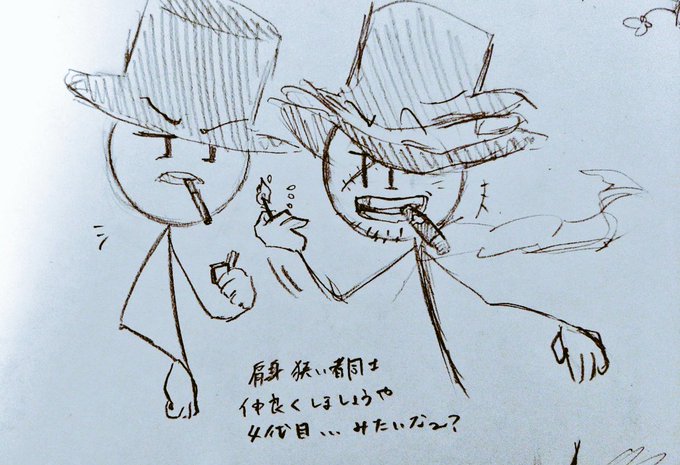 肩身狭い者同士
仲良くしましょうや
4代目... みたいな~?